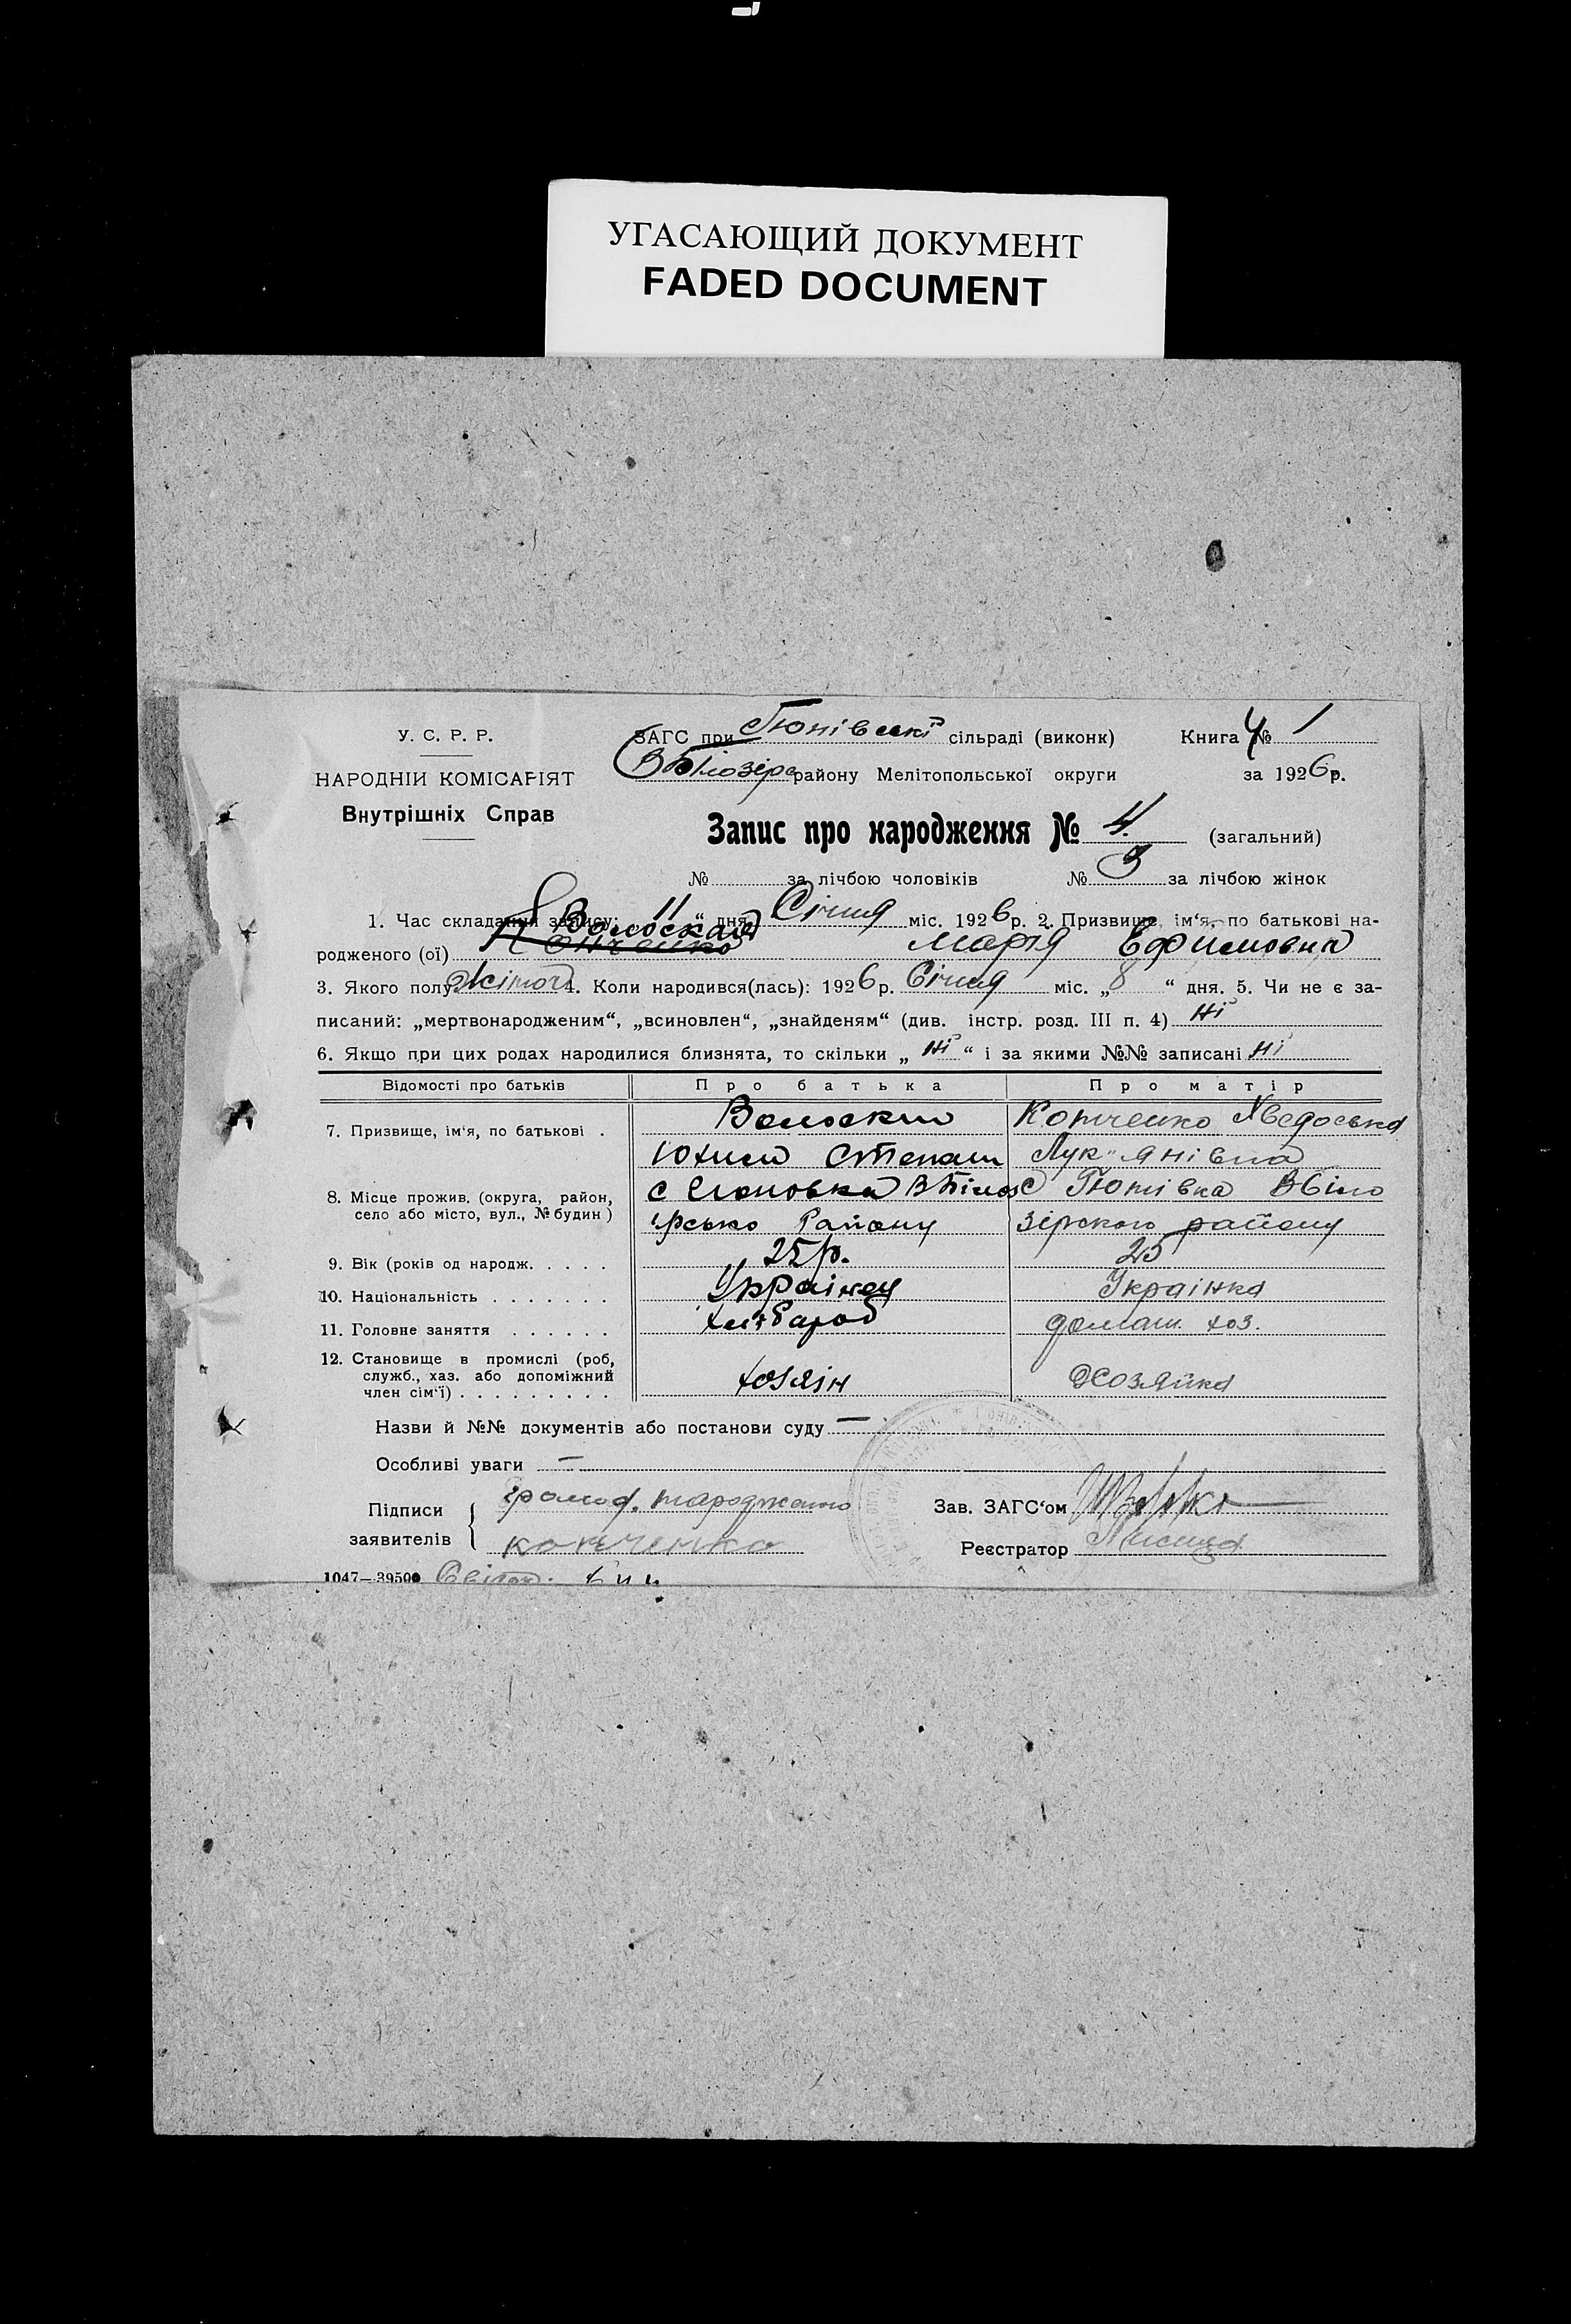 УГАСАЮЩИЙ ДОКУМЕНТ
FADED DOCUMENT
У. С. Р. Р.
НАРОДНІЙ КОМІСАРІЯТ
Внутрішніх Справ
ЗАГС при Гюнівскі сільраді (виконк)
ВБілозірс району Мелітопольської округи
Книга № 1
за 1926р.
Запис про народження № 4. (загальний)
№ за лічбою чоловіків № 3 за лічбою жінок
1. Час складання запису: 11 “ дня Січня міс. 1926р. 2. Призвище, ім‘я, по батькові на-
Волоская
родженого (ої) Марія Ефимовна
3. Якого полу жіночі 4. Коли народився(лась): 1926р. Січня міс. „8 “ дня. 5. Чи не є за-
писаний: „мертвонародженим“, „всиновлен“, „знайденям“ (див. інстр. розд. III п. 4) Ні
6. Якщо при цих родах народилися близнята, то скільки „ Ні “ і за якими №№ записані Ні
Відомості про батьків Про батька Про матір
7. Призвище, ім‘я, по батькові . Волоскии Копченко Хведоська
Юхим Степан Лук"янівна
8. Місце прожив. (округа, район, село або місто, вул., № будин) с ВБілоз с Гюнівка ВБіло
ірсько Району зірского району
9. Вік (років од народж. . . . . 25 р. 25
10. Національність . . . . . . . Українец Українка
11. Головне заняття . . . . . . хлібароб домаш. хоз.
12. Становище в промислі (роб, служб., хаз. або допоміжний член сім‘ї) . . . . . . . . . хозяін Хозяйка
Назви й №№ документів або постанови суду —
Особливі уваги —
Підписи заявителів
копченко
Зав. ЗАГС‘ом
Реєстратор
1047—39500